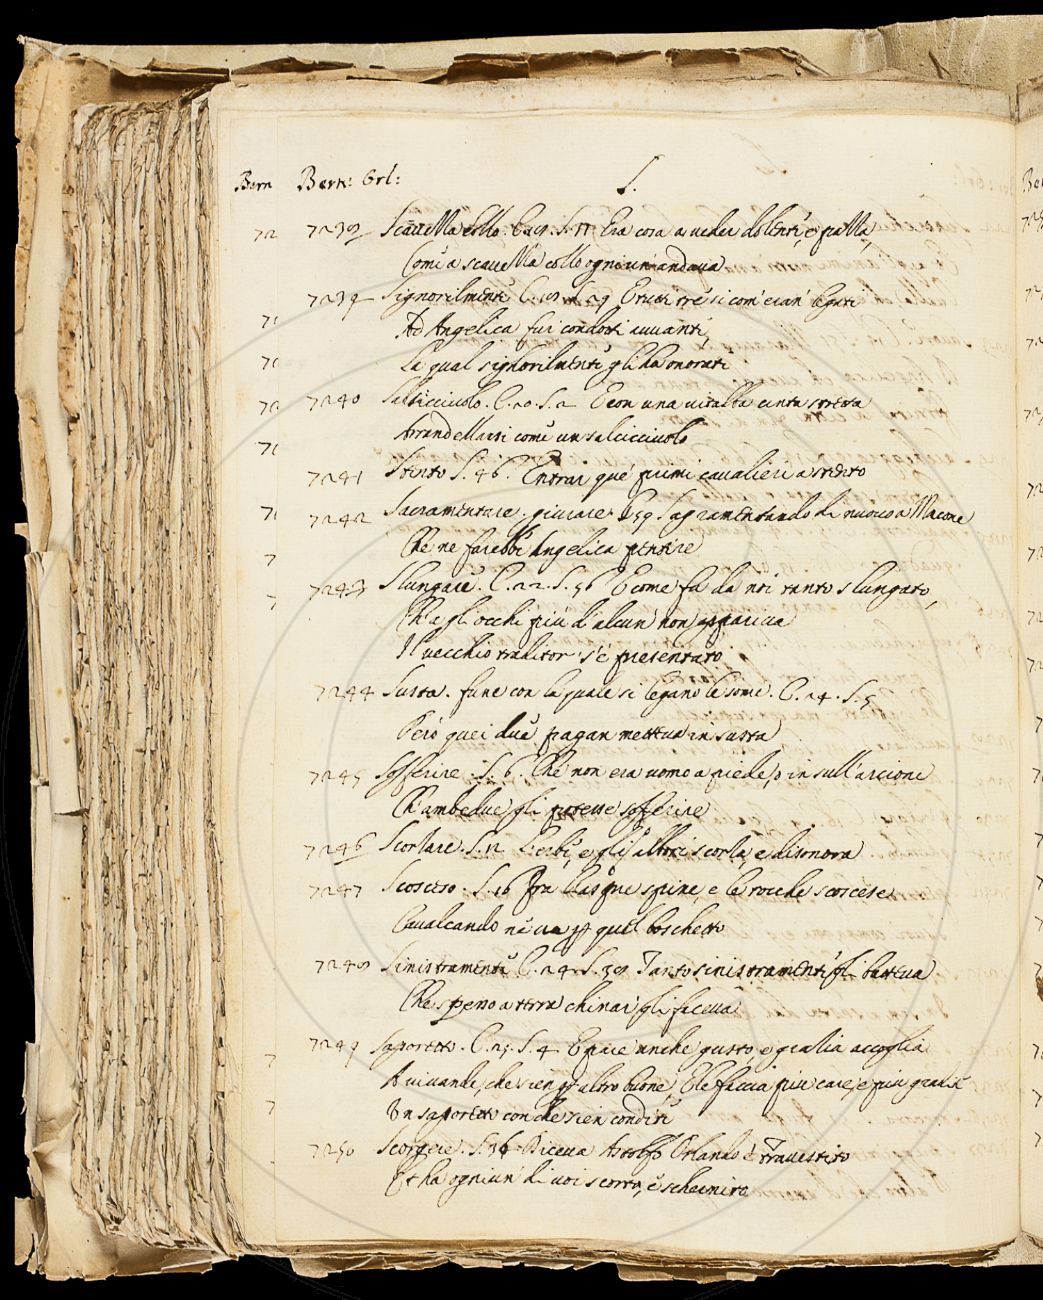 Bern
Bern: Orl:
S.
7238 Scavezza collo. C. 19. S. 11 Era cosa a veder dolente, e pazza
Come a scavezza collo ogniun andava
7239 Signorilmente C. 19. S. 29 E tutti tre si com' eran legati
Ad Angelica fur condotti avvanti,
La qual signorilmente gli ha onorati
7240 Salsicciuolo. C. 20. S. 2 E con una ritalta cinta stretta
Arrandellarsi come un salsicciuolo
7241 Stento S. 46. Entrar que' primi cavalieri a stento
7242 Sacramentare. giurare. S. 59 Sagramentando di nuovo a Macone
Che ne farebbe Angelica pentire
7243 Slungare. C. 22. S. 56 E come fu da noi tanto slungato,
Ch' agli occhi più d' alcun non apparica
Il vecchio traditor s' è presentato
7244 Susta. fune con la quale si legano le some. C. 24. S. 5
Però quei due pagan mettea in susta
7245 Sofferire. S. 6. Che non era uomo a piede, o in sull' arcione
Ch' ambedue gli potesse sofferire
7246 Scorbare. S. 12 e gli altri scorba, e disonora
7247 Scosceso. S. 16 Fra l' aspre spine, e le rocche scoscese
Cavalcando ne va per quel boschetto
7248 Sinistramente C. 24. S. 38 Tanto sinistramente gli batteva
Che spesso a terra chinar gli faceva
7249 Saporetto. C. 25. S. 4 E pare anche gusto, e grazia accoglia
A vivande, che sien per altro buone, E le faccia più care, e più gradite
Un saporetto con che sien condite
7250 Scorgere. S. 36 Diceva Astolfo Orlando è travestito
Et ha ogniun di voi scorto, e schernito